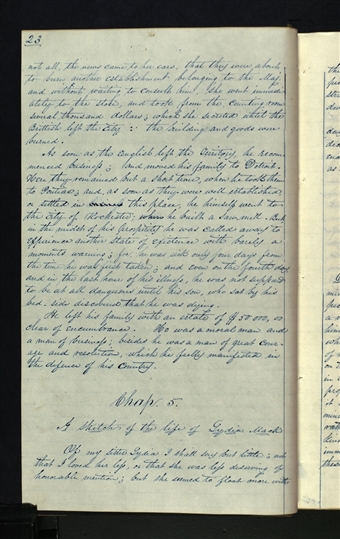 23
not all, the news came to her ears, that they were about
to burn another establishment belonging to the Maj.
and without waiting to consult him, she went immed-
iately to the store, and took from the counting room
several thousand dollars; which she secreted untill the
Brittish left the City: the building and goods were
burned.
As soon as the English left the Territory, he recom-
menced business; and moved his family to Detroit.
Here they remained but a short time, when he took them
to Pontiac; and, as soon as they were well established
or settled in this place, he himself went to
the City of Rochester, where he built a Saw-mill. But
in the midst of his prosperity he was called away to
experience another state of existence with barely a
moments warning; for, he was sick only four days from
the time he was first taken; and even on the fourth day
and in the last hour of his illness, he was not supposed
to be at all dangerous untill his son, who sat by his
bed-side discovered that he was dying.
He left his family with an estate of $50,000, oo
clear of incumbrance. He was a moral man and
a man of business; besides he was a man of great cour-
age and resolution, which he fully manifested in
the defence of his Country.
Chap. 5.
A sketch of the life of Lydia Mack
Of my sister Lydia I shall say but little; not
that I loved her less, or that she was less deserving of
honorable mention; but she seemed to float more with